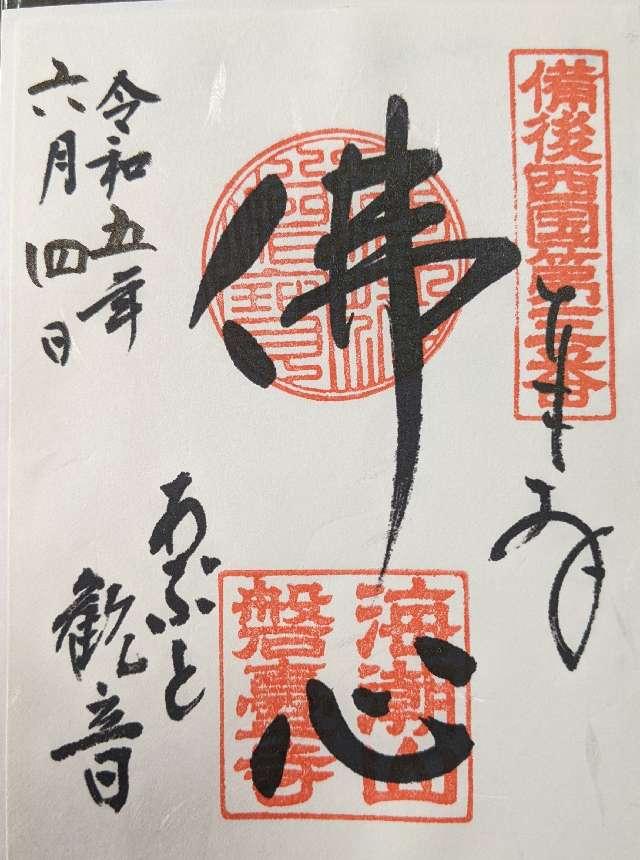 備後西国第三番
奉拝
佛心
海潮山
磐臺寺
あぶと
観音
令和五年
六月四日